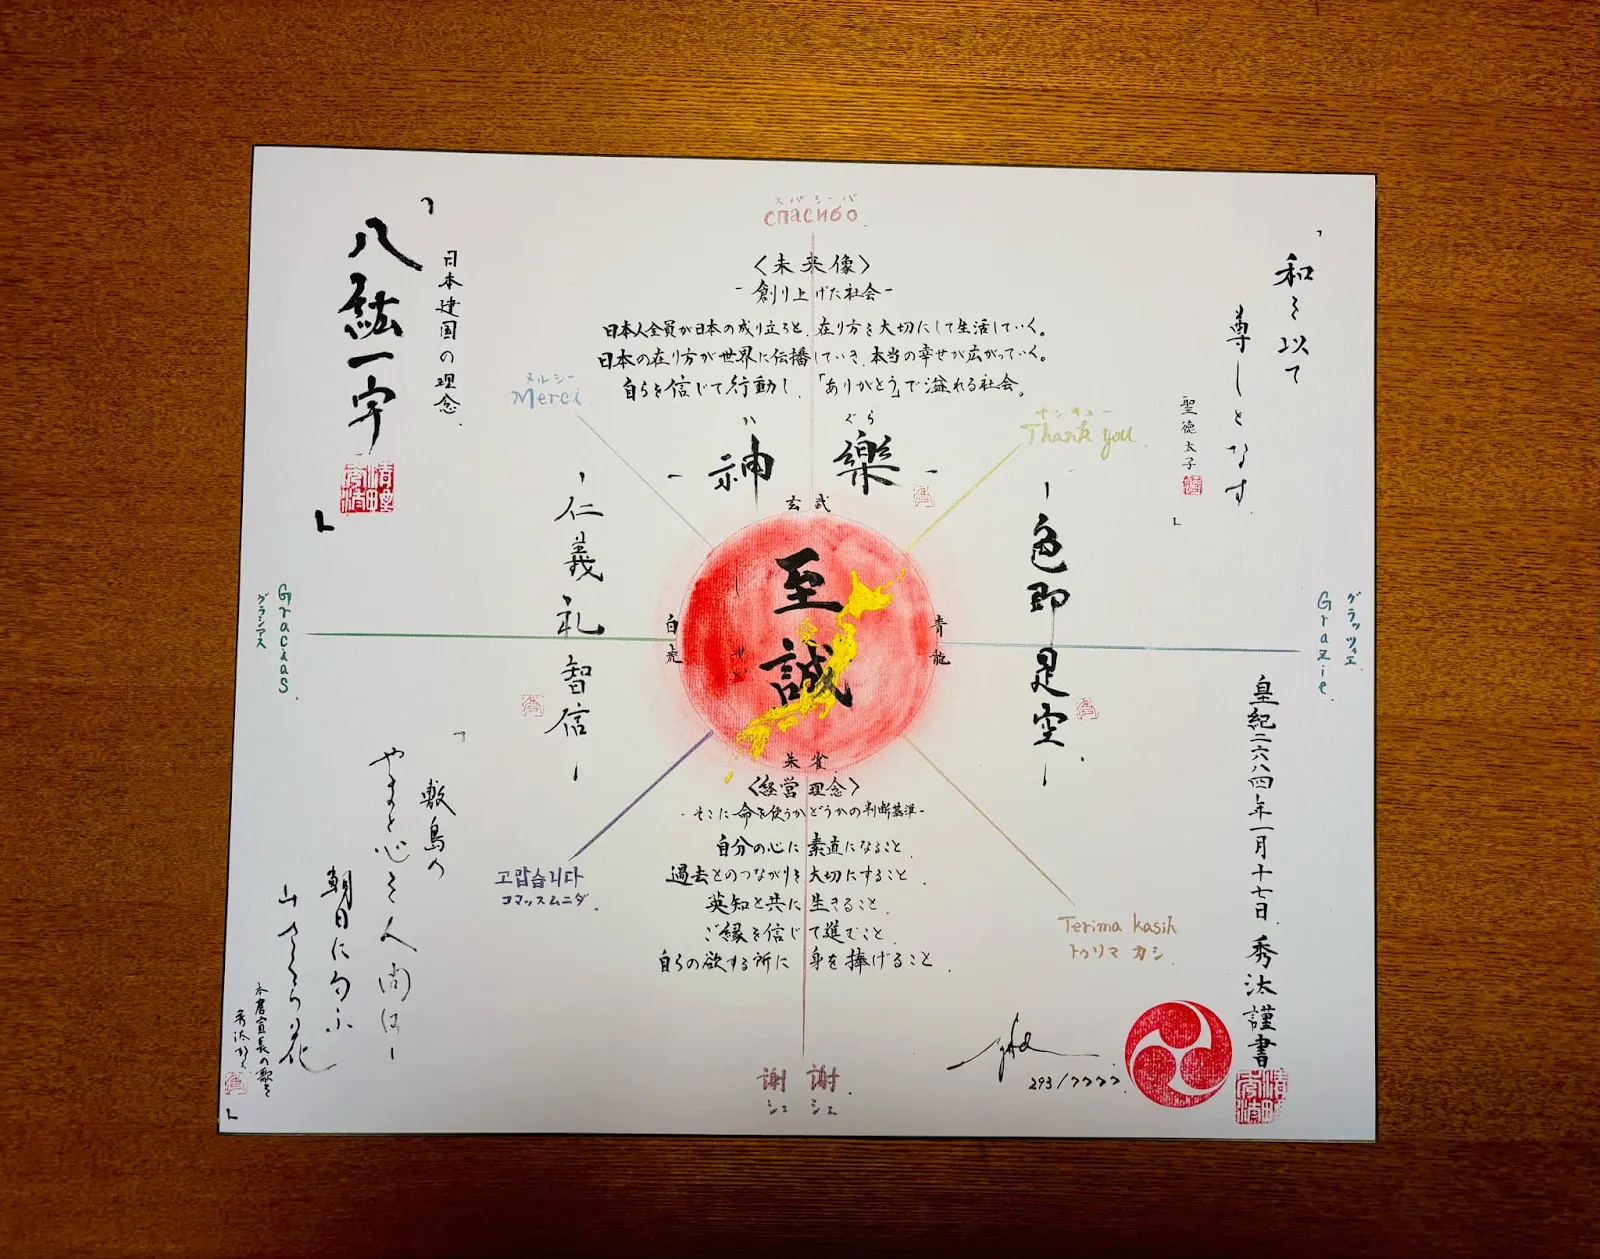 スパシーバ
спасибо
〈未来像〉
-創り上げた社会-
日本人全員が日本の成り立ちと、在り方を大切にして生活していく。
日本の在り方が世界に伝播していき、本当の幸せが広がっていく。
自らを信じて行動し、「ありがとう」で溢れる社会。
か ぐら
-神楽-
玄武
「和を以て
尊しとなす
聖徳太子
」
「八紘一宇
日本建国の理念
」
メルシー
Merci
サンキュー
Thank you
-仁義礼智信-
-色即是空-
至誠
白虎
青龍
朱雀
グラシアス
Gracias
グラッツィエ
Grazie
〈経営理念〉
-そこに命を使うかどうかの判断基準-
自分の心に素直になること
過去とのつながりを大切にすること
英知と共に生きること
ご縁を信じて進むこと
自らの欲する所に身を捧げること
고맙습니다
コマッスムニダ
Terima kasih
トゥリマカシ
「敷島の
やまと心を人問はー
朝日に匂ふ
山さくら花
本居宣長の歌を
」
皇紀二六八四年一月十七日 秀汰謹書
293/7777
謝謝
シェシェ